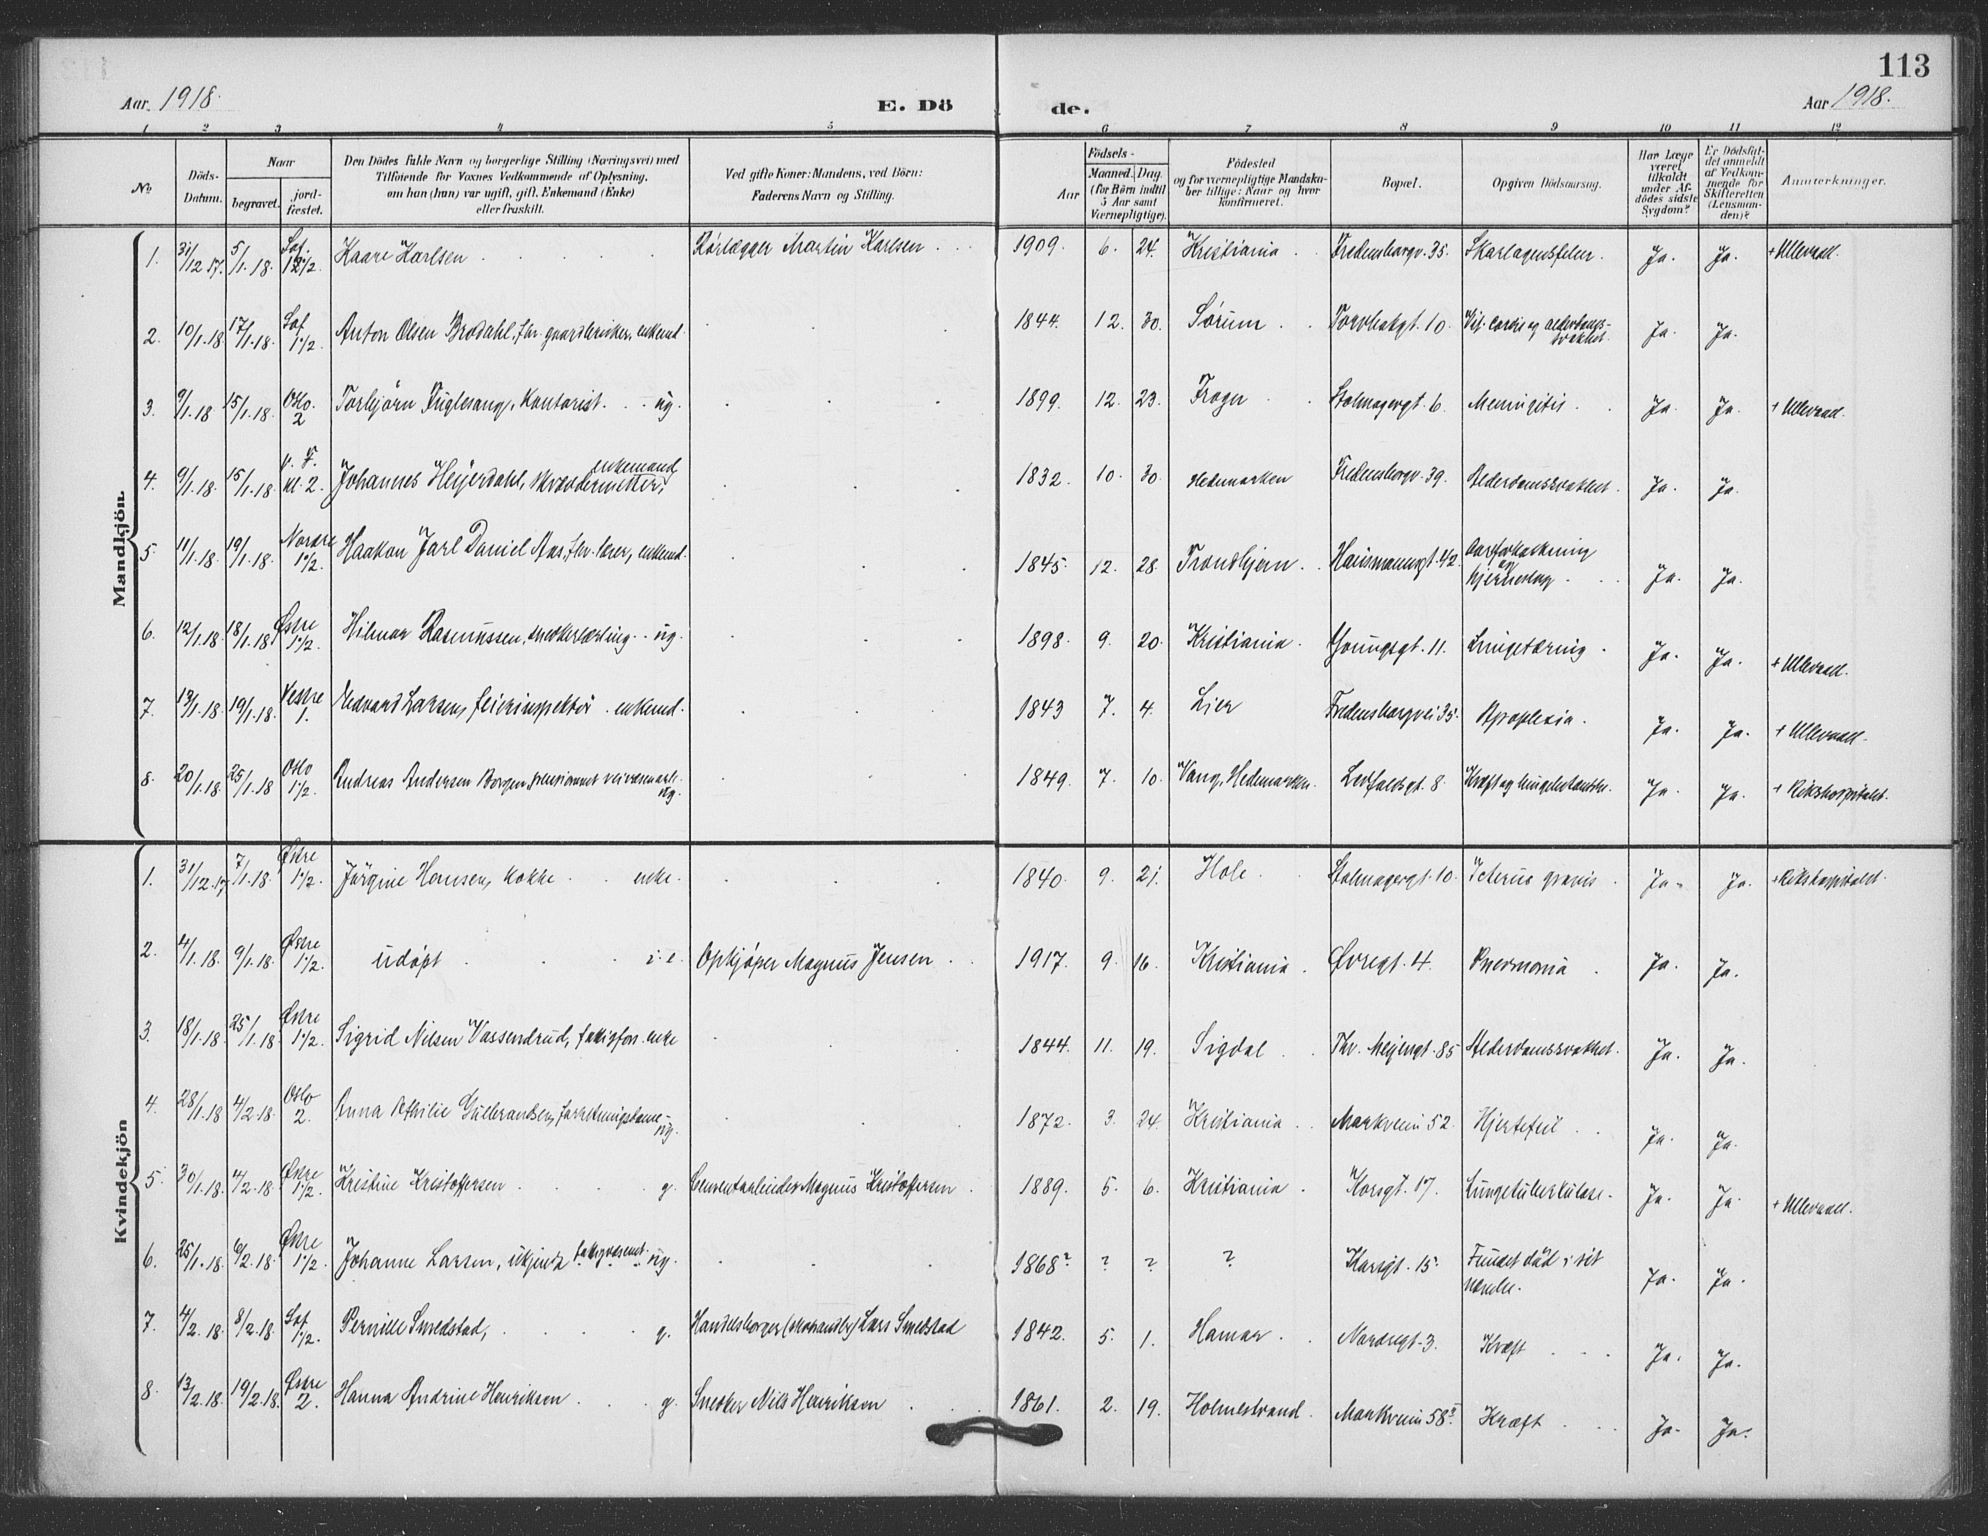 113
Aar. 1918.
E. Dö
de.
Aar 1918.
1 2 3 4 5 6 7 8 9 10 11 12
No.
Döds-
Datum.
Naar
begravet.
jord-
fæstet.
Den Dödes fulde Navn og borgerlige Stilling (Næringsvei) med
Tilföiende for Voxnes Vedkommende af Oplysning,
om han (hun) var ugift, gift, Enkemand (Enke)
eller fraskilt.
Ved gifte Koner: Mandens, ved Börn:
Faderens Navn og Stilling.
Födsels-
Aar
Maaned. Dag.
(for Börn indtil
5 Aar samt
Værnepligtige).
Födested
og for værnepligtige Mandska-
ber tillige: Naar og hvor
konfirmeret.
Bopæl.
Opgiven Dödsaarsag.
Har Læge
været
tilkaldt
under Af-
dödes sidste
Sygdom?
Er Dödsfal-
det anmeldt
af Vedkom-
mende for
Skifteretten
(Lensman-
den)?
Anmerkninger.
Mandkjön.
1. 31/12 17. 5/1.18. Sof. 1 1/2. Kaare Karlsen Rørlægger Martin Karlsen 1909. 6. 24. Kristiania Fredensborgv. 35. Skarlagensfeber. Ja. Ja. + Ullevaal.
2. 10/1.18 17/1.18. Sof. 1 1/2. Anton Olsen Brodahl, fhv. gaardbruker, enkemd. 1844. 12. 30. Sørum Torvbakgt. 10. Vit. cordis og alderdoms-
svakhet. Ja. Ja.
3. 9/1.18 15/1.18. Oslo. 2 Torbjørn Fuglesang, Kontorist. ug. 1899. 12. 23. Frogn Stolmagergt. 6. Meningitis. Ja. Ja. + Ullevaal.
4. 9/1.18. 15/1.18. kl. 2. Johannes Heyerdahl, skræddermester, enkemand 1832. 10. 30. Hedemarken Fredensborgv. 39. Alderdomssvakhet. Ja. Ja.
5. 11/1.18. 19/1.18. Nordre 1 1/2. Haakon Jarl Daniel Aas, fhv. lærer, enkemd. 1845. 12. 28. Trondhjem Hausmannsgt. 42. Aareforkalkning
og
hjerneslag. Ja. Ja.
6. 12/1.18. 18/1.18. Østre 1 1/2. Hilmar Rasmussen, snekkerlærling. ug. 1898. 9. 20. Kristiania Youngsgt. 11. Lungetæring Ja. Ja. + Ullevaal.
7. 13/1.18. 19/1.18. Vestre 1. Edvard Larsen, feierinspektør enkemd. 1843 7. 4. Lier Fredensborgvei 35. Apoplexia. Ja. Ja. + Ullevaal.
8. 20/1.18. 25/1.18 Oslo 1 1/2. Andreas Andersen Borgen, pensioneret veivæsenarb. ug. 1849. 7. 10. Vang, Hedemarken. Ledfaldsgt. 8. Kræft og lungebetændelse. Ja. Ja. + Rikshospitalet.
Kvindekjön
1. 31/12.17. 7/1.18. Østre 1 1/2. Jørgine Hansen, kokke enke. 1840. 9. 21. Hole Stolmagergt. 10. Icterus gravis Ja. Ja. + Rikshospitalet.
2. 4/1.18. 9/1.18. Østre 1 1/2. udøpt i. e. Opkjøper Magnus Jensen 1917. 9. 16. Kristiania Øvregt. 4. Pnevmonia Ja. Ja.
3. 18/1.18. 25/1.18. Østre 1 1/2. Sigrid Nilsen Vassendrud, fattigfors. enke 1844. 11. 19. Sigdal Thv. Meyersgt. 85 Alderdomssvakhet. Ja. Ja.
4. 28/1.18 4/2.18. Oslo 2. Anna Othilie Gulbrandsen, forretningsdame ug. 1872. 3. 24. Kristiania Markveien 52. Hjertefeil Ja. Ja.
5. 30/1.18. 4/2.18. Østre 1 1/2. Kristine Kristoffersen g. Cementarbeider Magnus Kristoffersen 1889. 5. 6. Kristiania Korsgt. 17. Lungetuberkulose. Ja. Ja. + Ullevaal.
6. 25/1.18. 6/2.18. Østre 1 1/2. Johanne Larsen, ukjendt fattigvæsenet. ug. 1868? ? ? ? Korsgt. 15. Fundet død i sit
værelse. Ja. Ja.
7. 4/2.18. 8/2.18. Sof. 1 1/2. Pernille Smedstad, g. Handelsborger Lars Smedstad 1842. 5. 1. Hamar Nordregt. 3. Kræft Ja. Ja.
8. 13/2.18. 19/2.18. Østre 2. Hanna Andrine Henriksen g. Snekker Nils Henriksen 1861. 2. 19. Holmestrand. Markveien 58 Kræft Ja. Ja.